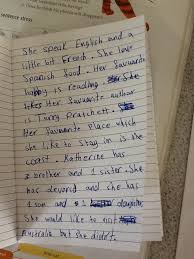 sentence stress
She speak English and a
little bit French. She love
Spanish food. Her favourite
happy is reading. She
likes Her favourite author
is Terry Pratchett.
Her favourite Place which
she like to Stay in is the
coast. Katherine has
brother and 1 sister. She
has devorsd and she has
1 son and 1 daughter.
She would like to visit
Australia but she didn't.